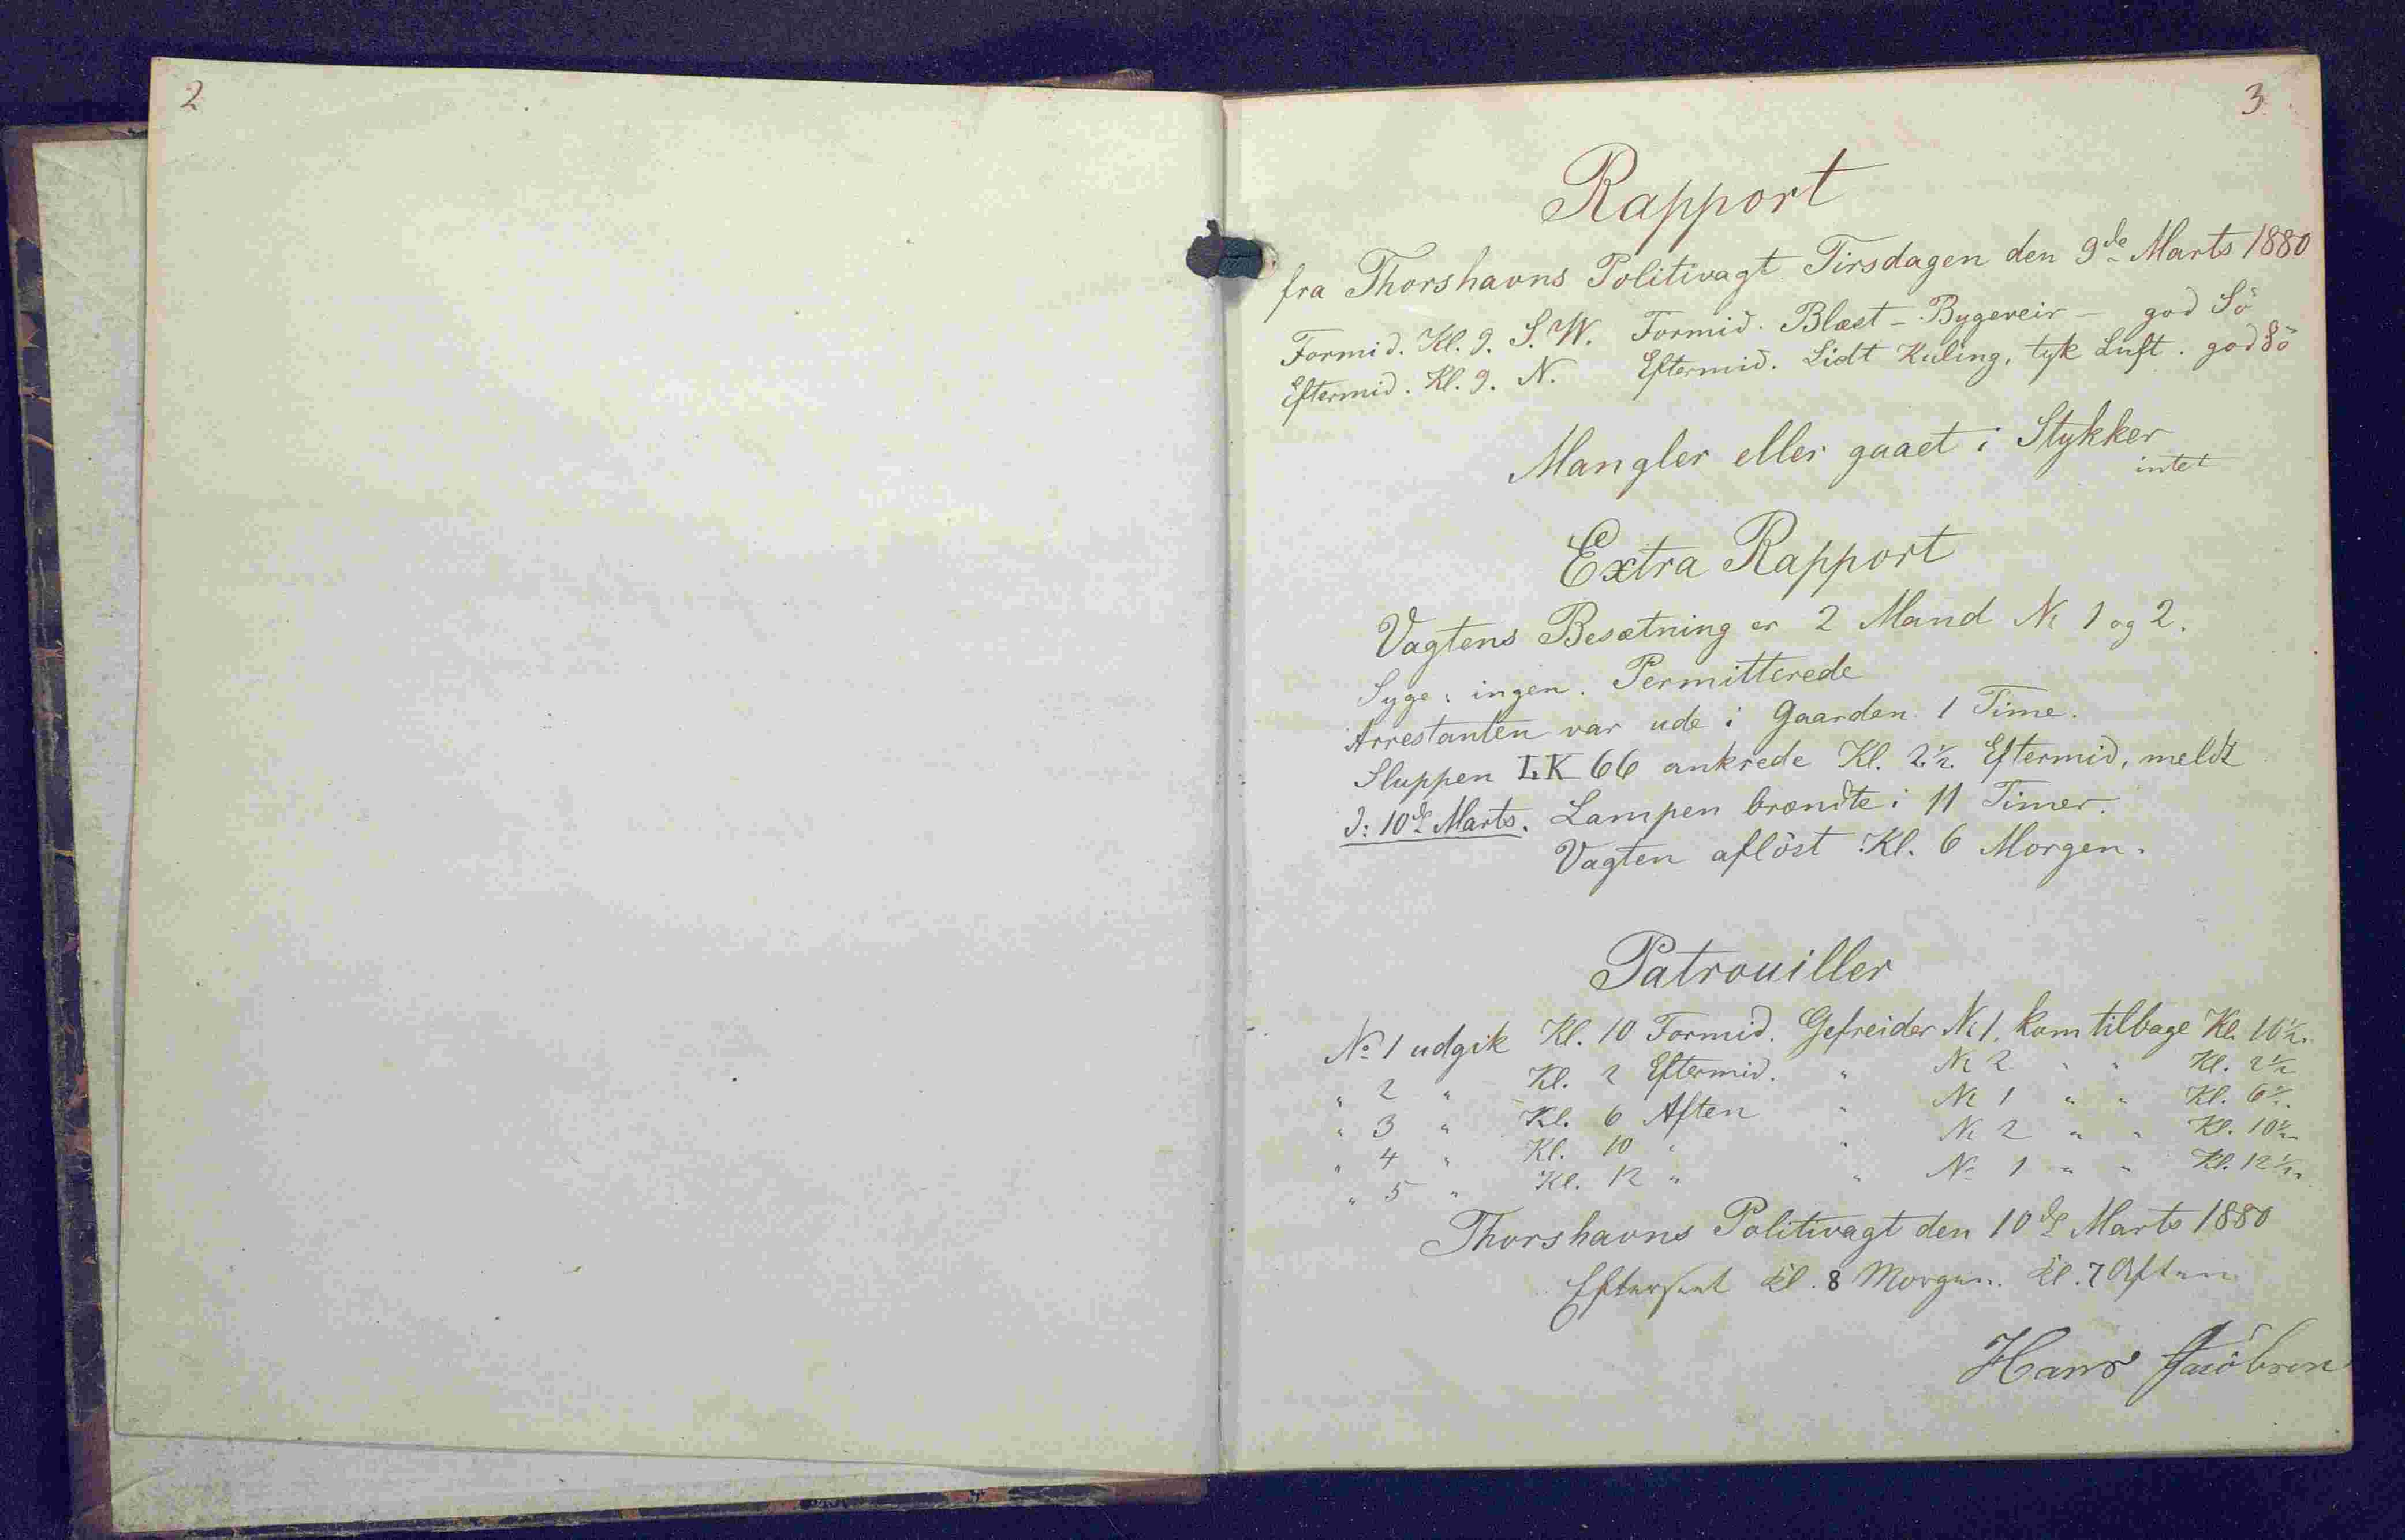 2
3
Rapport
fra Thorshavns Politivagt Tirsdagen den 9de Marts 1880
Formid. Kl. 9. S.W. Formid. Blæst - Bygeveir - god Sö
Eftermid. Kl. 9. N. Eftermid. Lidt Kuling, tyk Luft. god Sö
Mangler eller gaaet i Stykker
intet
Extra Rapport
Vagtens Besætning er 2 Mand No 1 og 2.
Syge: ingen. Permitterede
Arrestanten var ude i Gaarden 1 Time.
Sluppen LK 66 ankrede Kl. 2 1/2. Eftermid, meldt
d: 10de Marts. Lampen brændte i 11 Timer.
Vagten aflöst Kl. 6 Morgen.
Patrouiller
No 1 udgik Kl. 10 Formid. Gefreider No 1. kom tilbage Kl. 10 1/2.
" 2 " Kl. 2 Eftermid. " No 2 " " Kl. 2 1/2
" 3 " Kl. 6 Aften " No 1 " " Kl. 6 1/2.
" 4 " Kl. 10 " " No 2 " " Kl. 10 1/2
" 5 " Kl. 12 " " No 1 " " Kl. 12 1/2.
Thorshavns Politivagt den 10de Marts 1880
Efterseet Kl. 8 Morgen. Kl. 7 Aften
Hans Jacobsen